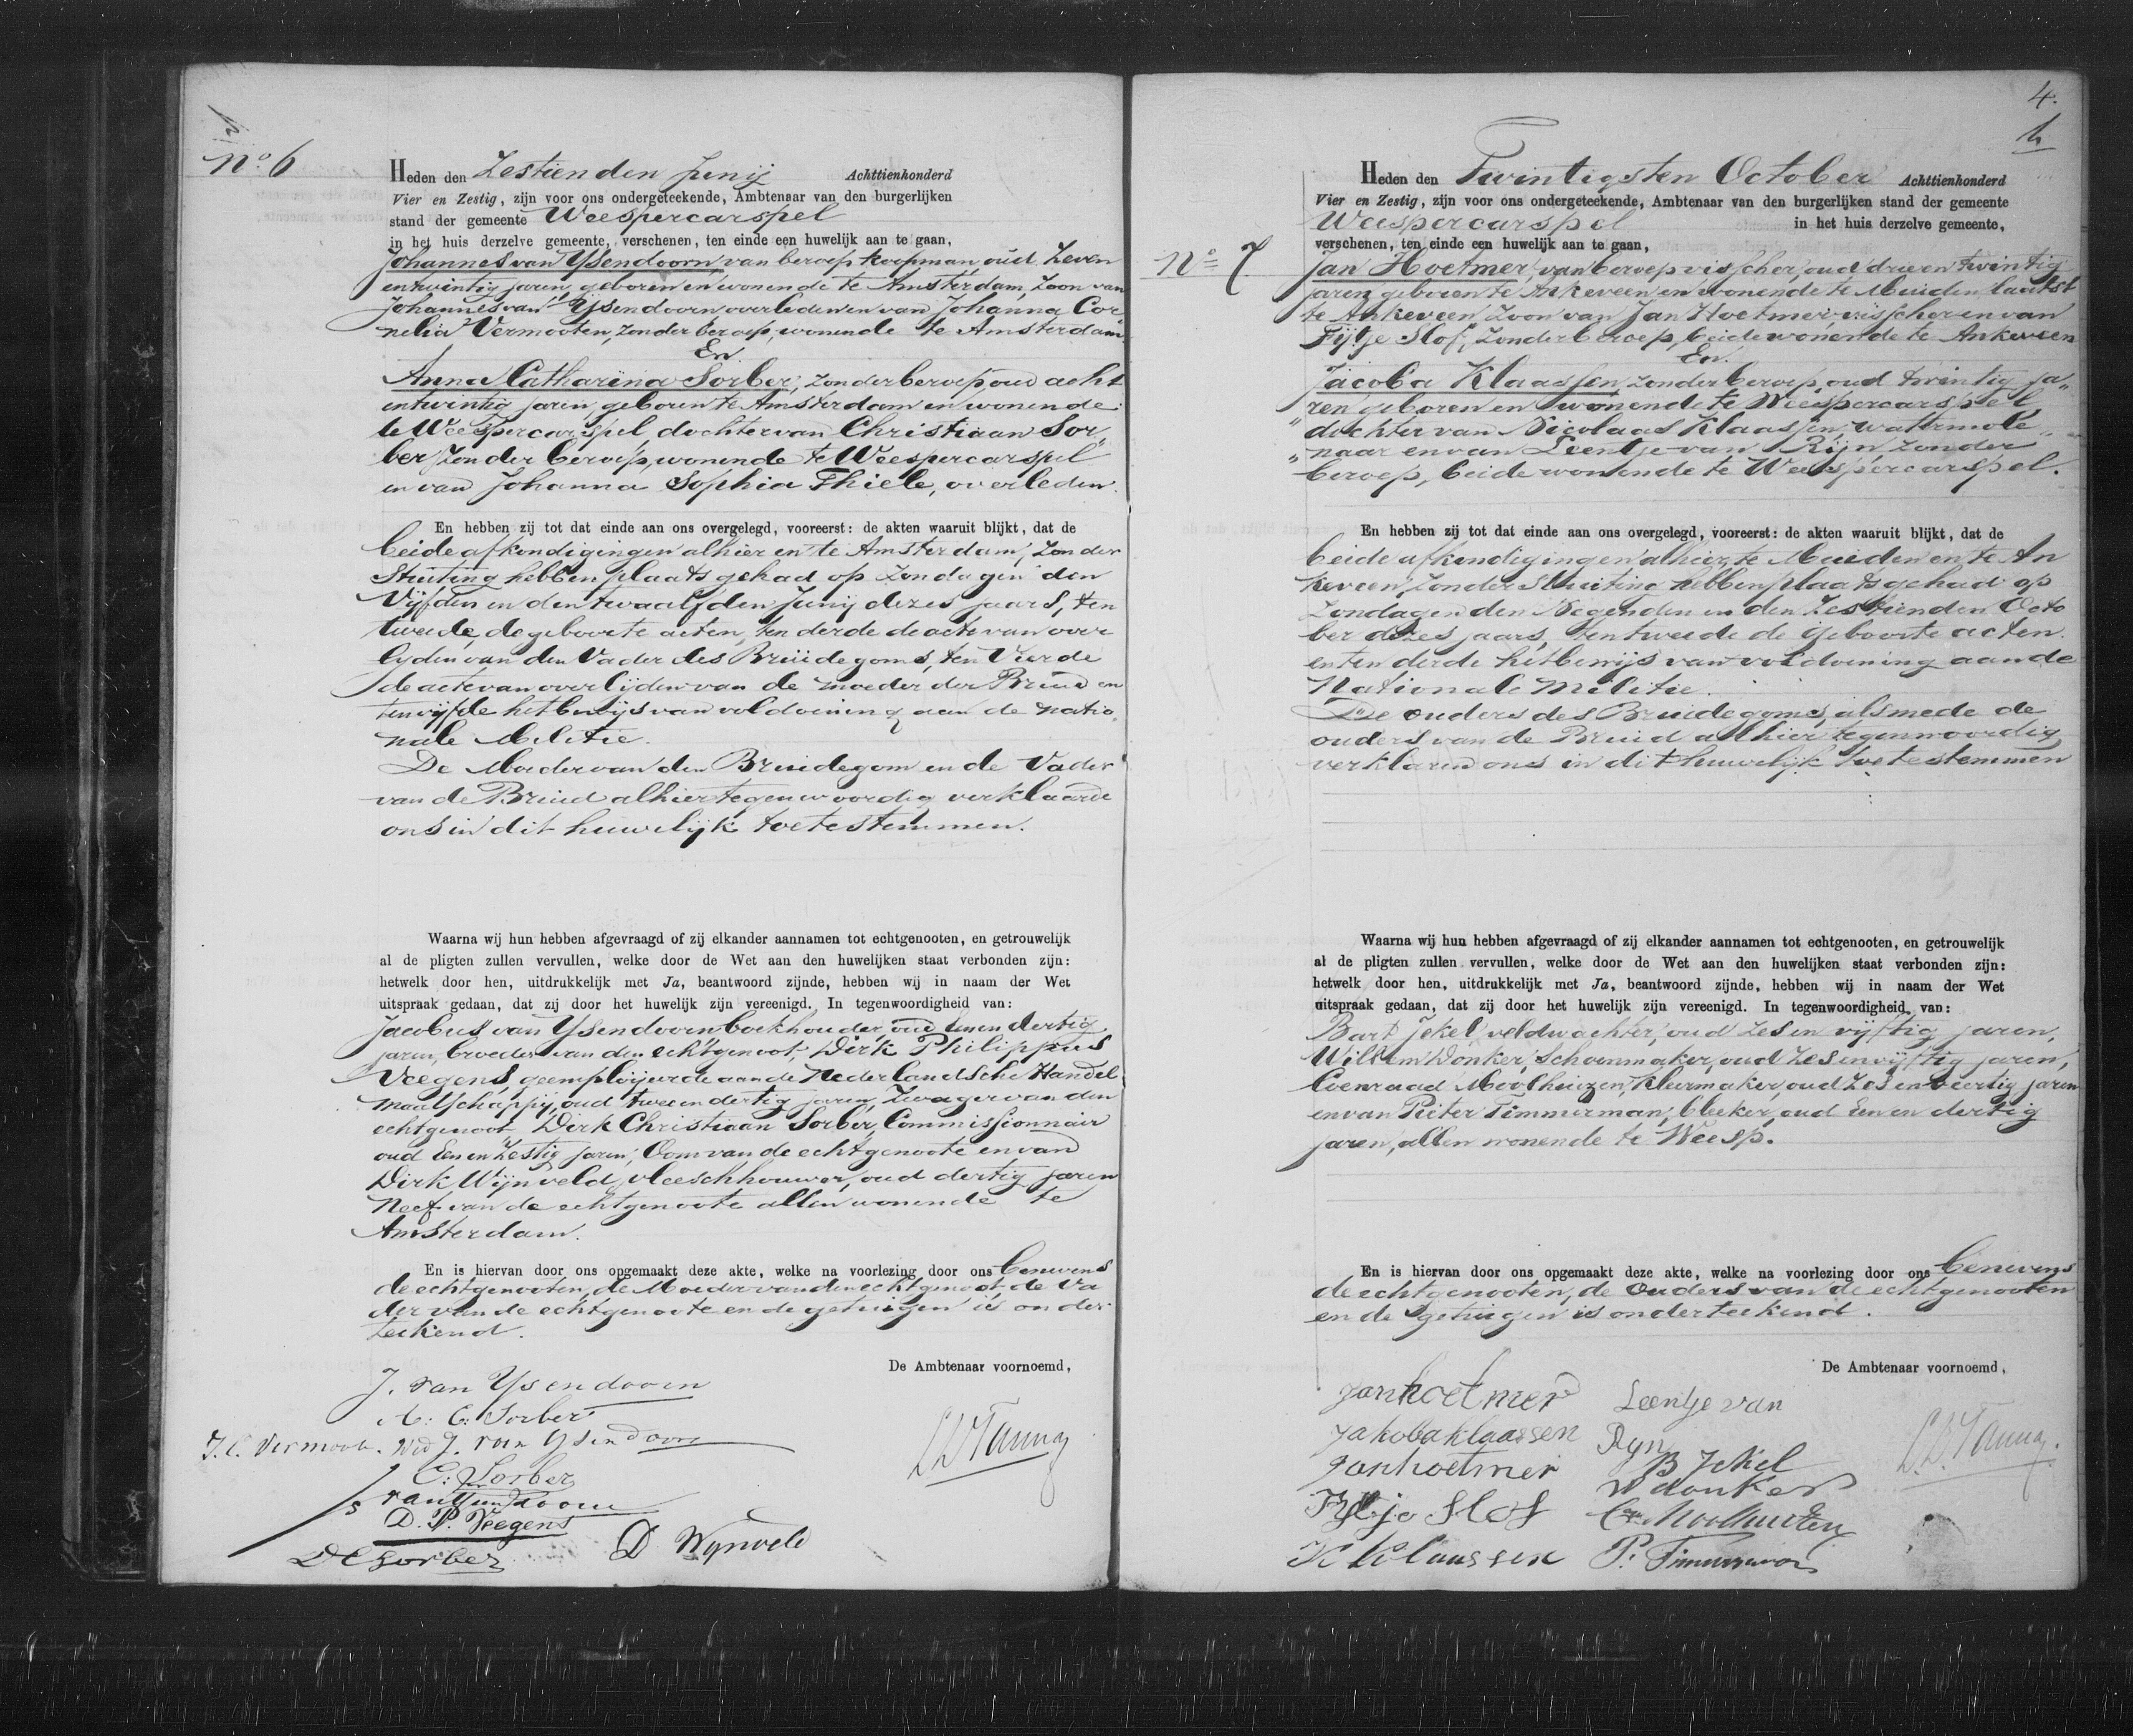 No 6
Heden den Zestienden Junij Achttienhonderd
Vier en Zestig, zijn voor ons ondergeteekende, Ambtenaar van den burgerlijken
stand der gemeente Weespercarspel
in het huis derzelve gemeente, verschenen, ten einde een huwelijk aan te gaan,
Johannes van Ysendoorn, van beroep koopman, oud Zeven
entwintig jaren, geboren en wonende te Amsterdam, Zoon van
Johannes van Ysendoorn overleden en van Johanna Cor
nelia Vermooten, zonder beroep, wonende te Amsterdam
En
Anna Catharina Sorber, zonder beroep, oud acht
entwintig jaren, geboren te Amsterdam en wonende
te Weespercarspel, dochter van Christiaan Sor„
ber, zonder beroep, wonende te Weespercarspel
en van Johanna Sophia Thiele, overleden.
En hebben zij tot dat einde aan ons overgelegd, vooreerst: de akten waaruit blijkt, dat de
beide afkondigingen alhier en te Amsterdam, zonder
Stuiting hebben plaats gehad op zondagen den
Vijfden en den twaalfden Junij dezes jaars, ten
tweede, de geboorte acten, ten derde de acte van over
lyden van den Vader des Bruidegoms, ten Vierde
de acte van overlijden van de moeder der Bruid en
ten vijfde het bewijs van voldoening aan de natio„
nale Militie.
De Moeder van den Bruidegom en de Vader
van de Bruid alhier tegenwoordig verklaarde
ons in dit huwelijk toetestemmen.
Waarna wij hun hebben afgevraagd of zij elkander aannamen tot echtgenooten, en getrouwelijk
al de pligten zullen vervullen, welke door de Wet aan den huwelijken staat verbonden zijn:
hetwelk door hen, uitdrukkelijk met Ja, beantwoord zijnde, hebben wij in naam der Wet
uitspraak gedaan, dat zij door het huwelijk zijn vereenigd. In tegenwoordigheid van:
Jacobus van Ysendoorn boekhouder, oud Eenen dertig
jaren, broeder van den echtgenoot, Dirk Philippus
Veegens, geemploijeerde aan de Nederlandsche Handel
maatschappij, oud tweeen dertig jaren, Zwager van den
echtgenoot, Dirk Christiaan Sorber, Commissionnair
oud Eenen Zestig jaren, Oom van de echtgenoote en van
Dirk Wijnveld, vleeschhouwer, oud dertig jaren
Neef van de echtgenoote allen wonende te
Amsterdam.
En is hiervan door ons opgemaakt deze akte, welke na voorlezing door ons benevens
de echtgenooten, de Moeder van den echtgenoot, de Va
der van de echtgenoote en de getuigen is onder
teekend.
De Ambtenaar voornoemd,
J. van Ysendoorn
A: C: Sorber
J. C. Vermoote. Wed J. van Ysendoorn
C: Sorber
D. P. Veegens
D C Sorber
D Wynveld
4.
Heden den Twintigsten October Achttienhonderd
Vier en Zestig, zijn voor ons ondergeteekende, Ambtenaar van den burgerlijken stand der gemeente
Weespercarspel in het huis derzelve gemeente,
verschenen, ten einde een huwelijk aan te gaan,
No 7
Jan Hoetmer, van beroep visscher, oud drieen twintig
jaren geboren te Ankeveen en wonende te Muiden laatst
te Ankeveen Zoon van Jan Hoetmer visscher en van
Fijtje Slof, Zonder beroep, beide wonende te Ankeveen
En
Jacoba Klaassen zonder beroep, oud twintig ja„
ren geboren en wonende te Weespercarspel
„dochter van Nicolaas Klaassen, watermole„
„naar en van Leentje van Rijn zonder
beroep, beide wonende te Weespercarspel.
En hebben zij tot dat einde aan ons overgelegd, vooreerst: de akten waaruit blijkt, dat de
beide afkondigingen alhier, te Muiden en te An
keveen, zonder Stuiting hebben plaats gehad op
Zondagen den Negenden en den Zestienden Octo
ber dezes jaars, ten tweede de geboorte acten.
en ten derde het bewijs van voldoening aan de
Nationale Militie.
De ouders des Bruidegoms, alsmede de
ouders van de Bruid alhier tegenwoordig
verklaren ons in dit huwelijk toetestemmen
Waarna wij hun hebben afgevraagd of zij elkander aannamen tot echtgenooten, en getrouwelijk
al de pligten zullen vervullen, welke door de Wet aan den huwelijken staat verbonden zijn:
hetwelk door hen, uitdrukkelijk met Ja, beantwoord zijnde, hebben wij in naam der Wet
uitspraak gedaan, dat zij door het huwelijk zijn vereenigd. In tegenwoordigheid van:
Bart Jekel, veldwachter, oud zesen vijftig jaren,
Willem Donker, Schoenmaker, oud Zesenvijftig jaren,
Coenraad Moolhuizen, Kleermaker, oud Zesenveertig jaren
en van Pieter Timmerman, bleeker, oud Eenen dertig
jaren, allen wonende te Weesp.
En is hiervan door ons opgemaakt deze akte, welke na voorlezing door ons benevens
de echtgenooten, de Ouders van de echtgenooten
en de getuigen is onderteekend.
De Ambtenaar voornoemd,
Jan hoetmer
Leentje van
Ryn
Jakoba klaassen
Jan hoetmer
B Jekel
W donker
Fytje Slof
C Moolhuizen
K Klaassen
P: Timmerman